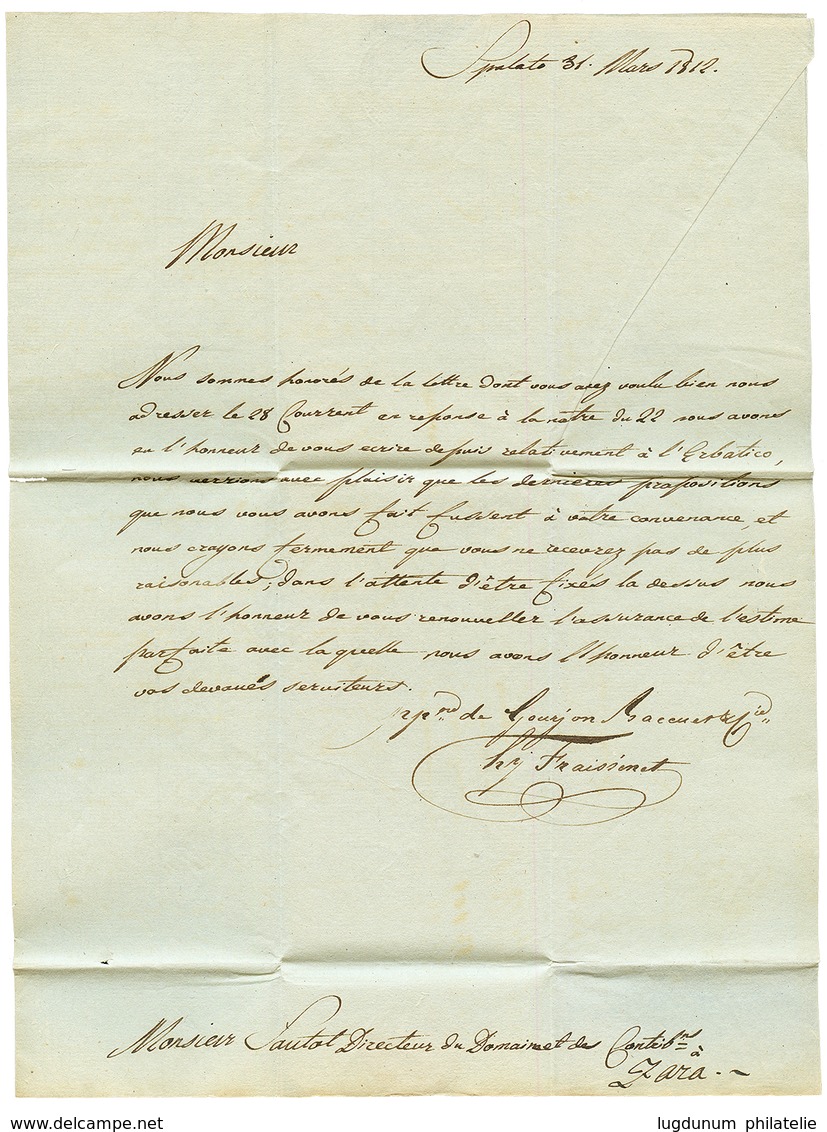 Spalato 31. Mars 1812.
Monsieur
Nous sommes honorés de la lettre dont vous avez voulu bien nous
adresser le 28 Courrent en reponse à la nôtre du 22 nous avons
eu l'honneur de vous ecrire depuis relativement à l'Erbatico,
nous verrions avec plaisir que les dernieres propositions
que nous vous avons fait fussent à vôtre convenance, et
nous crayons fermement que vous ne recevrez pas de plus
raisonables; dans l'attente d'être fixés la dessus nous
avons l'honneur de vous renouveller l'assurance de l'estime
parfaite avec laquelle nous avons l'honneur d'être
vos devoués serviteurs.
de Gourjon & Cie
hy Fraissinet
Monsieur Sautot Directeur du Domaine et des Contribns
à
Zara.
delcampe.net
lugdunum philatelie